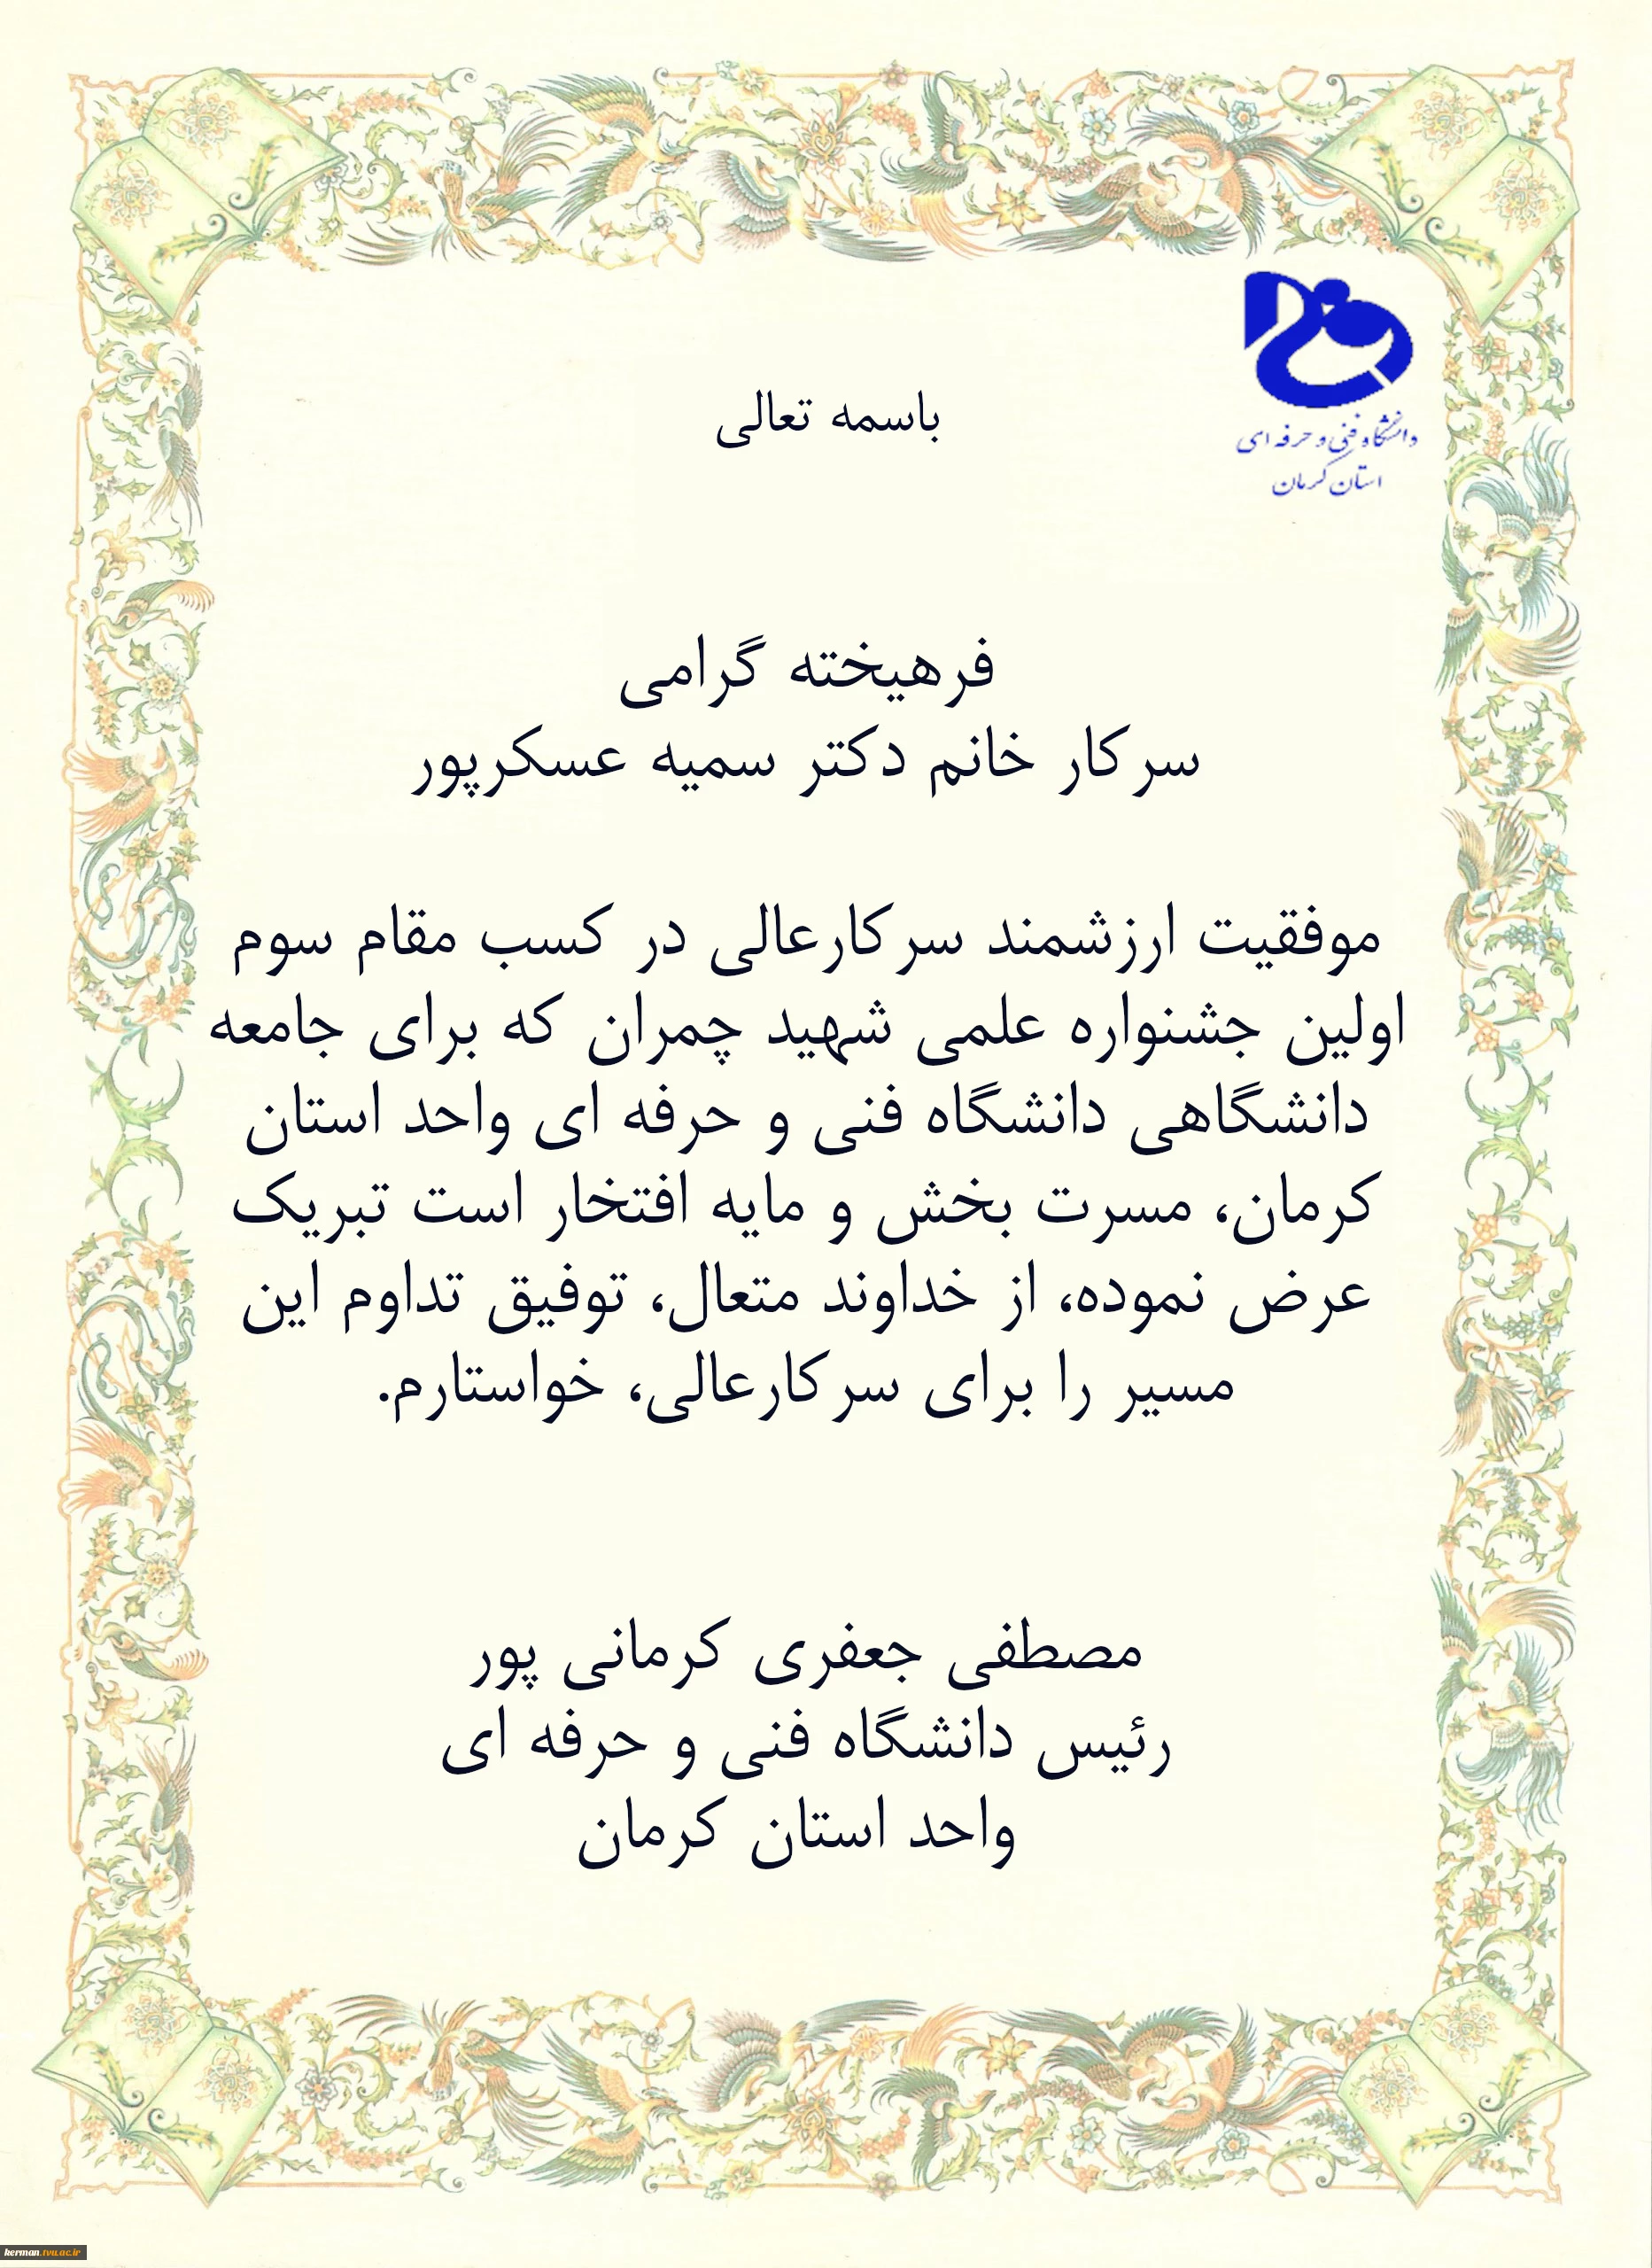 دانشگاه فنی و حرفه ای
استان کرمان
باسمه تعالی
فرهیخته گرامی
سرکار خانم دکتر سمیه عسکرپور
موفقیت ارزشمند سرکارعالی در کسب مقام سوم
اولین جشنواره علمی شهید چمران که برای جامعه
دانشگاهی دانشگاه فنی و حرفه ای واحد استان
کرمان، مسرت بخش و مایه افتخار است تبریک
عرض نموده، از خداوند متعال، توفیق تداوم این
مسیر را برای سرکارعالی، خواستارم.
مصطفی جعفری کرمانی پور
رئیس دانشگاه فنی و حرفه ای
واحد استان کرمان
kerman.tvu.ac.ir